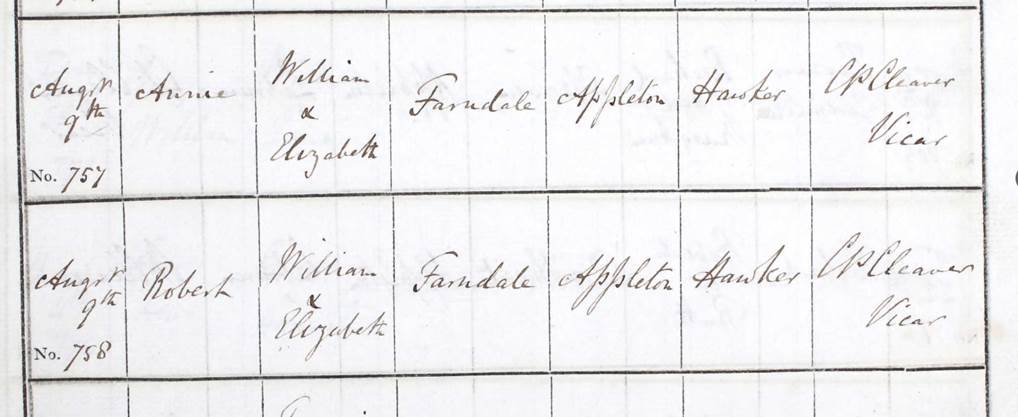 Augst Annie William Farndale Appleton Hawker CP Cleaver
9th & Vicar
Elizabeth
No. 757
Augst Robert William Farndale Appleton Hawker CP Cleaver
9th & Vicar
Elizabeth
No. 758